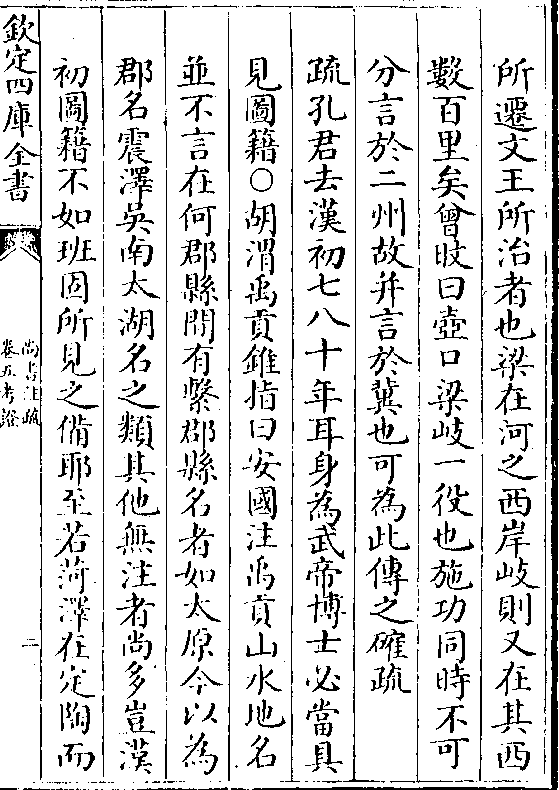 所遷文王所治者也梁在河之西岸岐則又在其西
數百里矣曾旼曰壺口梁岐一役也施功同時不可
分言於二州故并言於冀也可為此傳之確疏
疏孔君去漢初七八十年耳身為武帝博士必當具
見圖籍○胡渭禹貢錐指曰安國注禹貢山水地名
並不言在何郡縣間有繫郡縣名者如太原今以為
郡名震澤吳南太湖名之類其他無注者尚多豈漢
初圖籍不如班固所見之備耶至若菏澤在定陶而
欽定四庫全書
尚書注疏
卷五考證
二